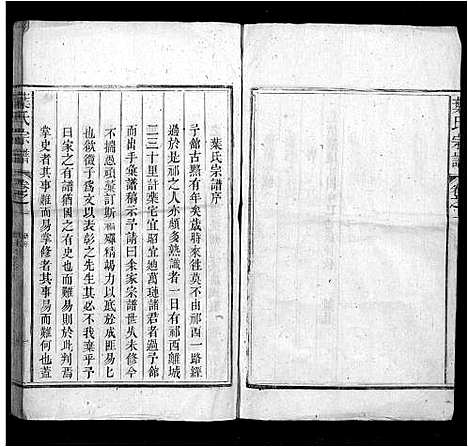 葉氏宗譜
卷之一
葉氏宗譜序
予館古黟有年矣歲時來徃莫不由祁西一路經
過於是祁之人亦頗多熟識者一日有祁西離城
二三十里許葉宅宜昭宜迪萬璉諸君者過予館
而出手彙譜稿示予請曰余家宗譜世久未修今
不揣愚頑彙訂斯編殫精竭力以底於成匪易匕
也欲復子為文以表彰之先生其必不我棄乎予
曰家之有譜猶國之有史也而難易則於此判焉
掌史者其事難而易掌修者其事易而難何也蓋
葉氏宗譜
卷之一